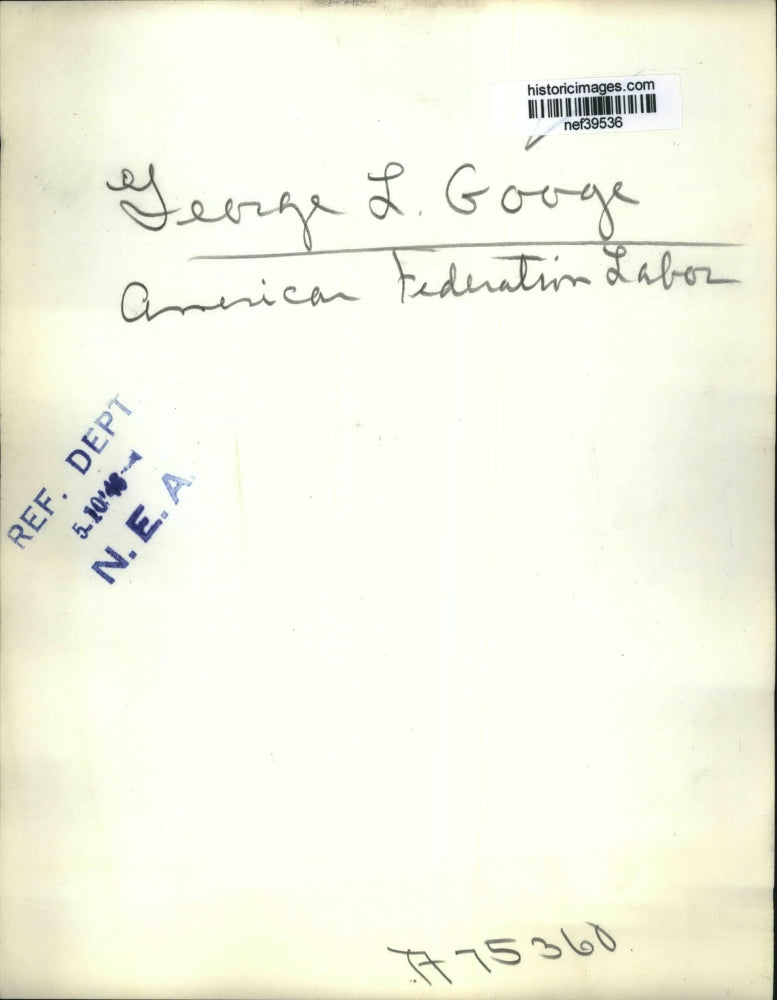 historicimages.com
nef39536
George L. Googe
American Federation Labor
REF. DEPT
5-10-46
N. E. A.
A75360